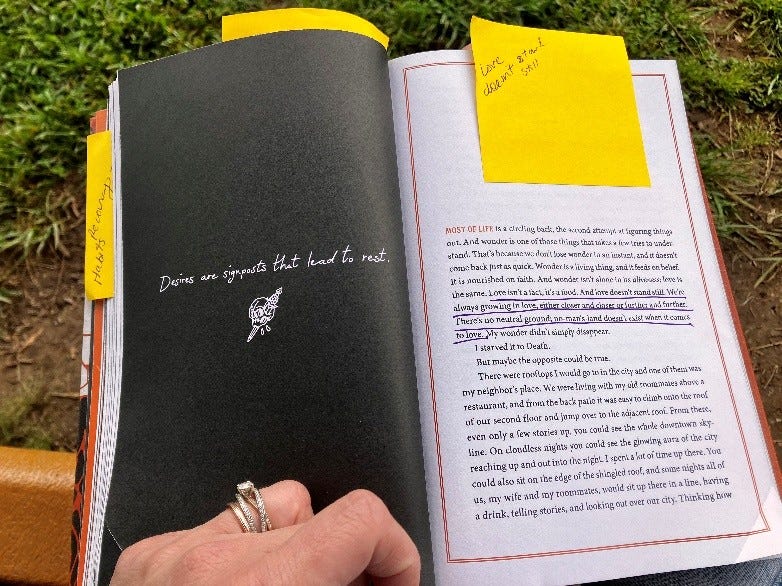 Habits Recovery
Desires are signposts that lead to rest.
Love
doesn't stand
still
MOST OF LIFE is a circling back, the second attempt at figuring things
out. And wonder is one of those things that takes a few tries to under-
stand. That's because we don't lose wonder in an instant, and it doesn't
come back just as quick. Wonder is a living thing, and it feeds on belief.
It is nourished on faith. And wonder isn't alone in its aliveness; love is
the same. Love isn't a fact, it's a food. And love doesn't stand still. We're
always growing in love, either closer and closer or further and further.
There's no neutral ground; no-man's land doesn't exist when it comes
to love. My wonder didn't simply disappear.
I starved it to Death.
But maybe the opposite could be true.
There were rooftops I would go to in the city and one of them was
my neighbor's place. We were living with my old roommates above a
restaurant, and from the back patio it was easy to climb onto the roof
of our second floor and jump over to the adjacent roof. From there,
even only a few stories up, you could see the whole downtown sky-
line. On cloudless nights you could see the glowing aura of the city
reaching up and out into the night. I spent a lot of time up there. You
could also sit on the edge of the shingled roof, and some nights all of
us, my wife and my roommates, would sit up there in a line, having
a drink, telling stories, and looking out over our city. Thinking how